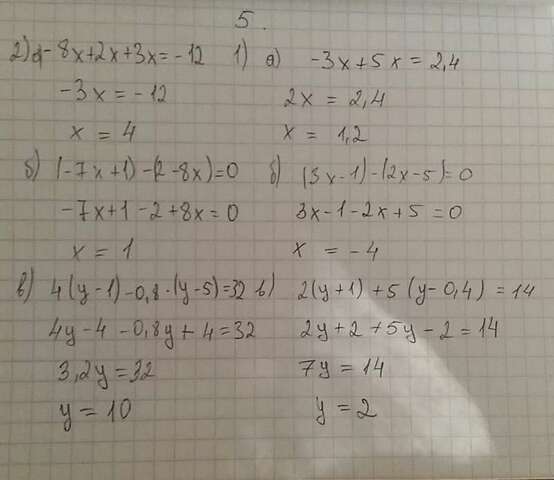 5.
2) а) -8x+2x+3x=-12
-3x = -12
x = 4
б) (-7x+1)-(2-8x)=0
-7x+1-2+8x=0
x = 1
в) 4(y-1)-0,8·(y-5)=32
4y-4-0,8y+4=32
3,2y=32
y=10
1) а) -3x+5x=2,4
2x = 2,4
x = 1,2
б) (3x-1)-(2x-5)=0
3x-1-2x+5=0
x = -4
в) 2(y+1)+5(y-0,4)=14
2y+2+5y-2=14
7y=14
y=2